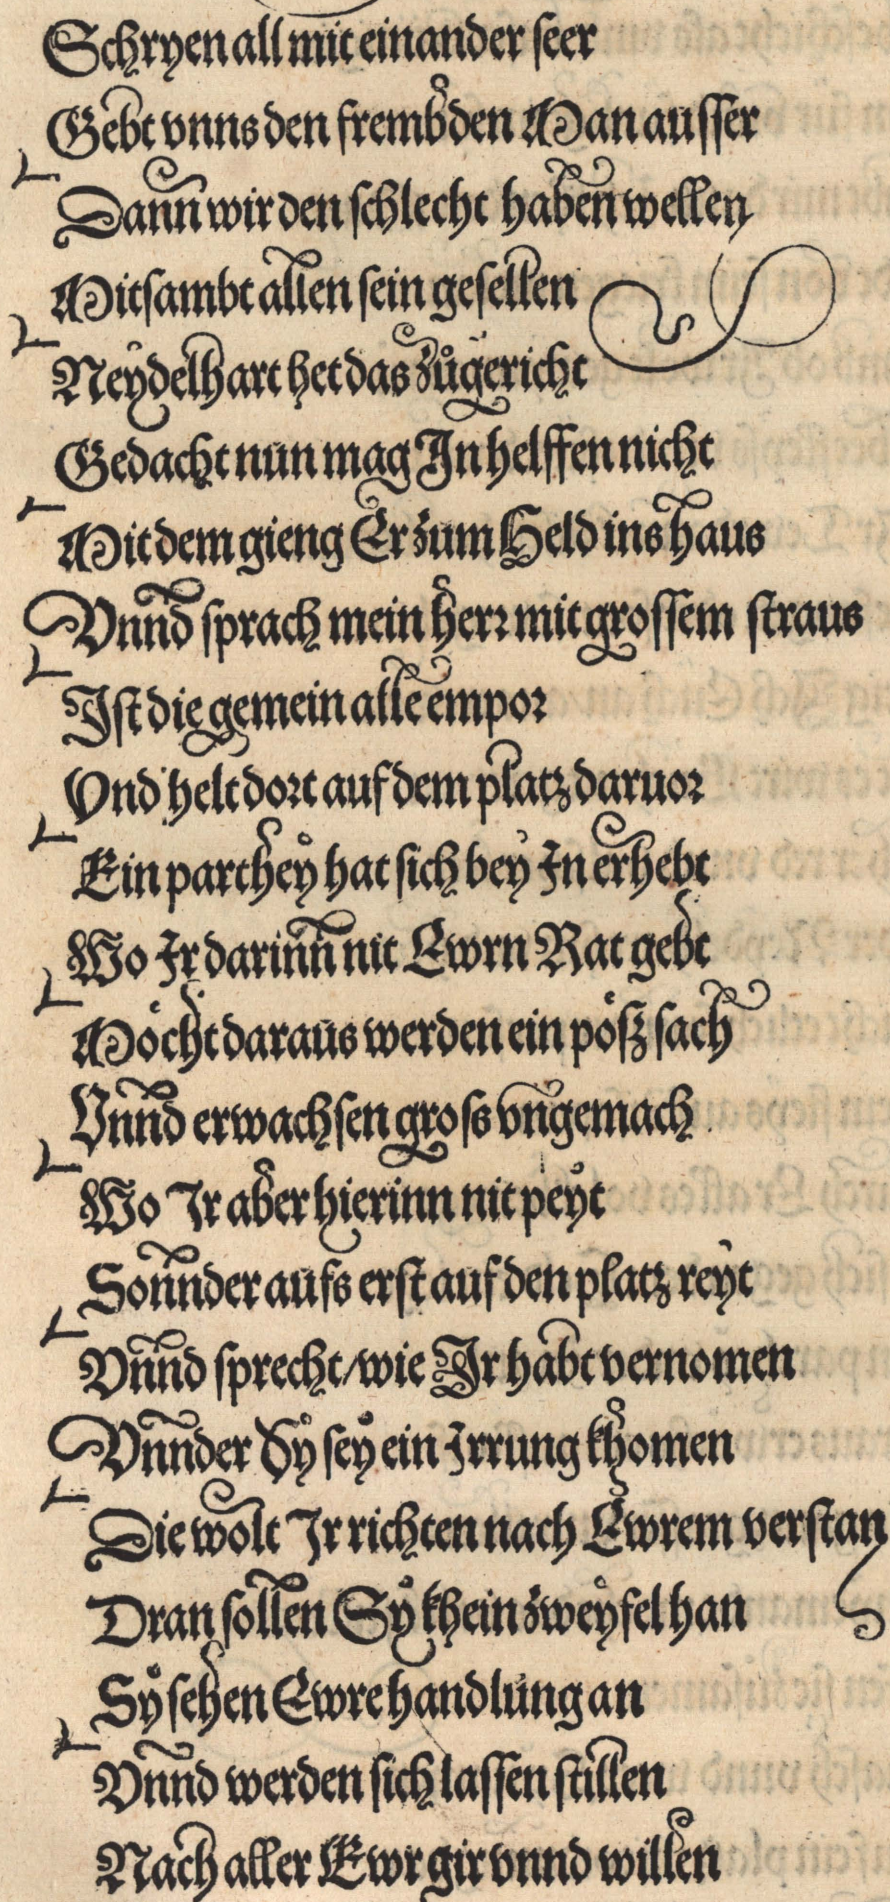 Schryen all mit einander seer
Gebt vnns den frembden Man ausser
Dann wir den schlecht haben wellen
Mitsambt allen sein gesellen
Neÿdelhart het das zůgericht
Gedacht nun mag In helffen nicht
Mit dem gieng Er zum Held ins haus
Vnnd sprach mein herr mit grossem straus
Ist die gemein alle empor
Vnd helt dort auf dem platz daruor
Ein parthey hat sich bey In erhebt
Wo Ir darinn nit Ewrn Rat gebt
Möcht daraus werden ein pösz sach
Vnnd erwachsen gross vngemach
Wo Ir aber hierinn nit peyt
Sonnder aufs erst auf den platz reyt
Vnnd sprecht / wie Ir habt vernomen
Vnnder Sy sey ein Irrung khomen
Die wolt Ir richten nach Ewrem verstan
Dran sollen Sy khein zweyfel han
Sy sehen Ewre handlung an
Vnnd werden sich lassen stillen
Nach aller Ewr gir vnnd willen